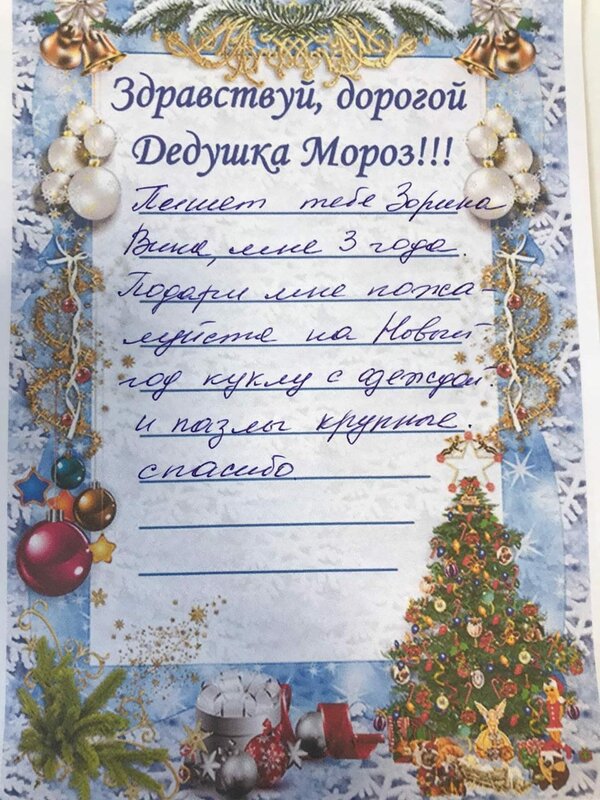 Здравствуй, дорогой
Дедушка Мороз!!!
Пишет тебе Зорина
Вика, мне 3 года.
Подари мне пожа-
луйста на Новый
год куклу с одеждой
и пазлы крупные.
спасибо